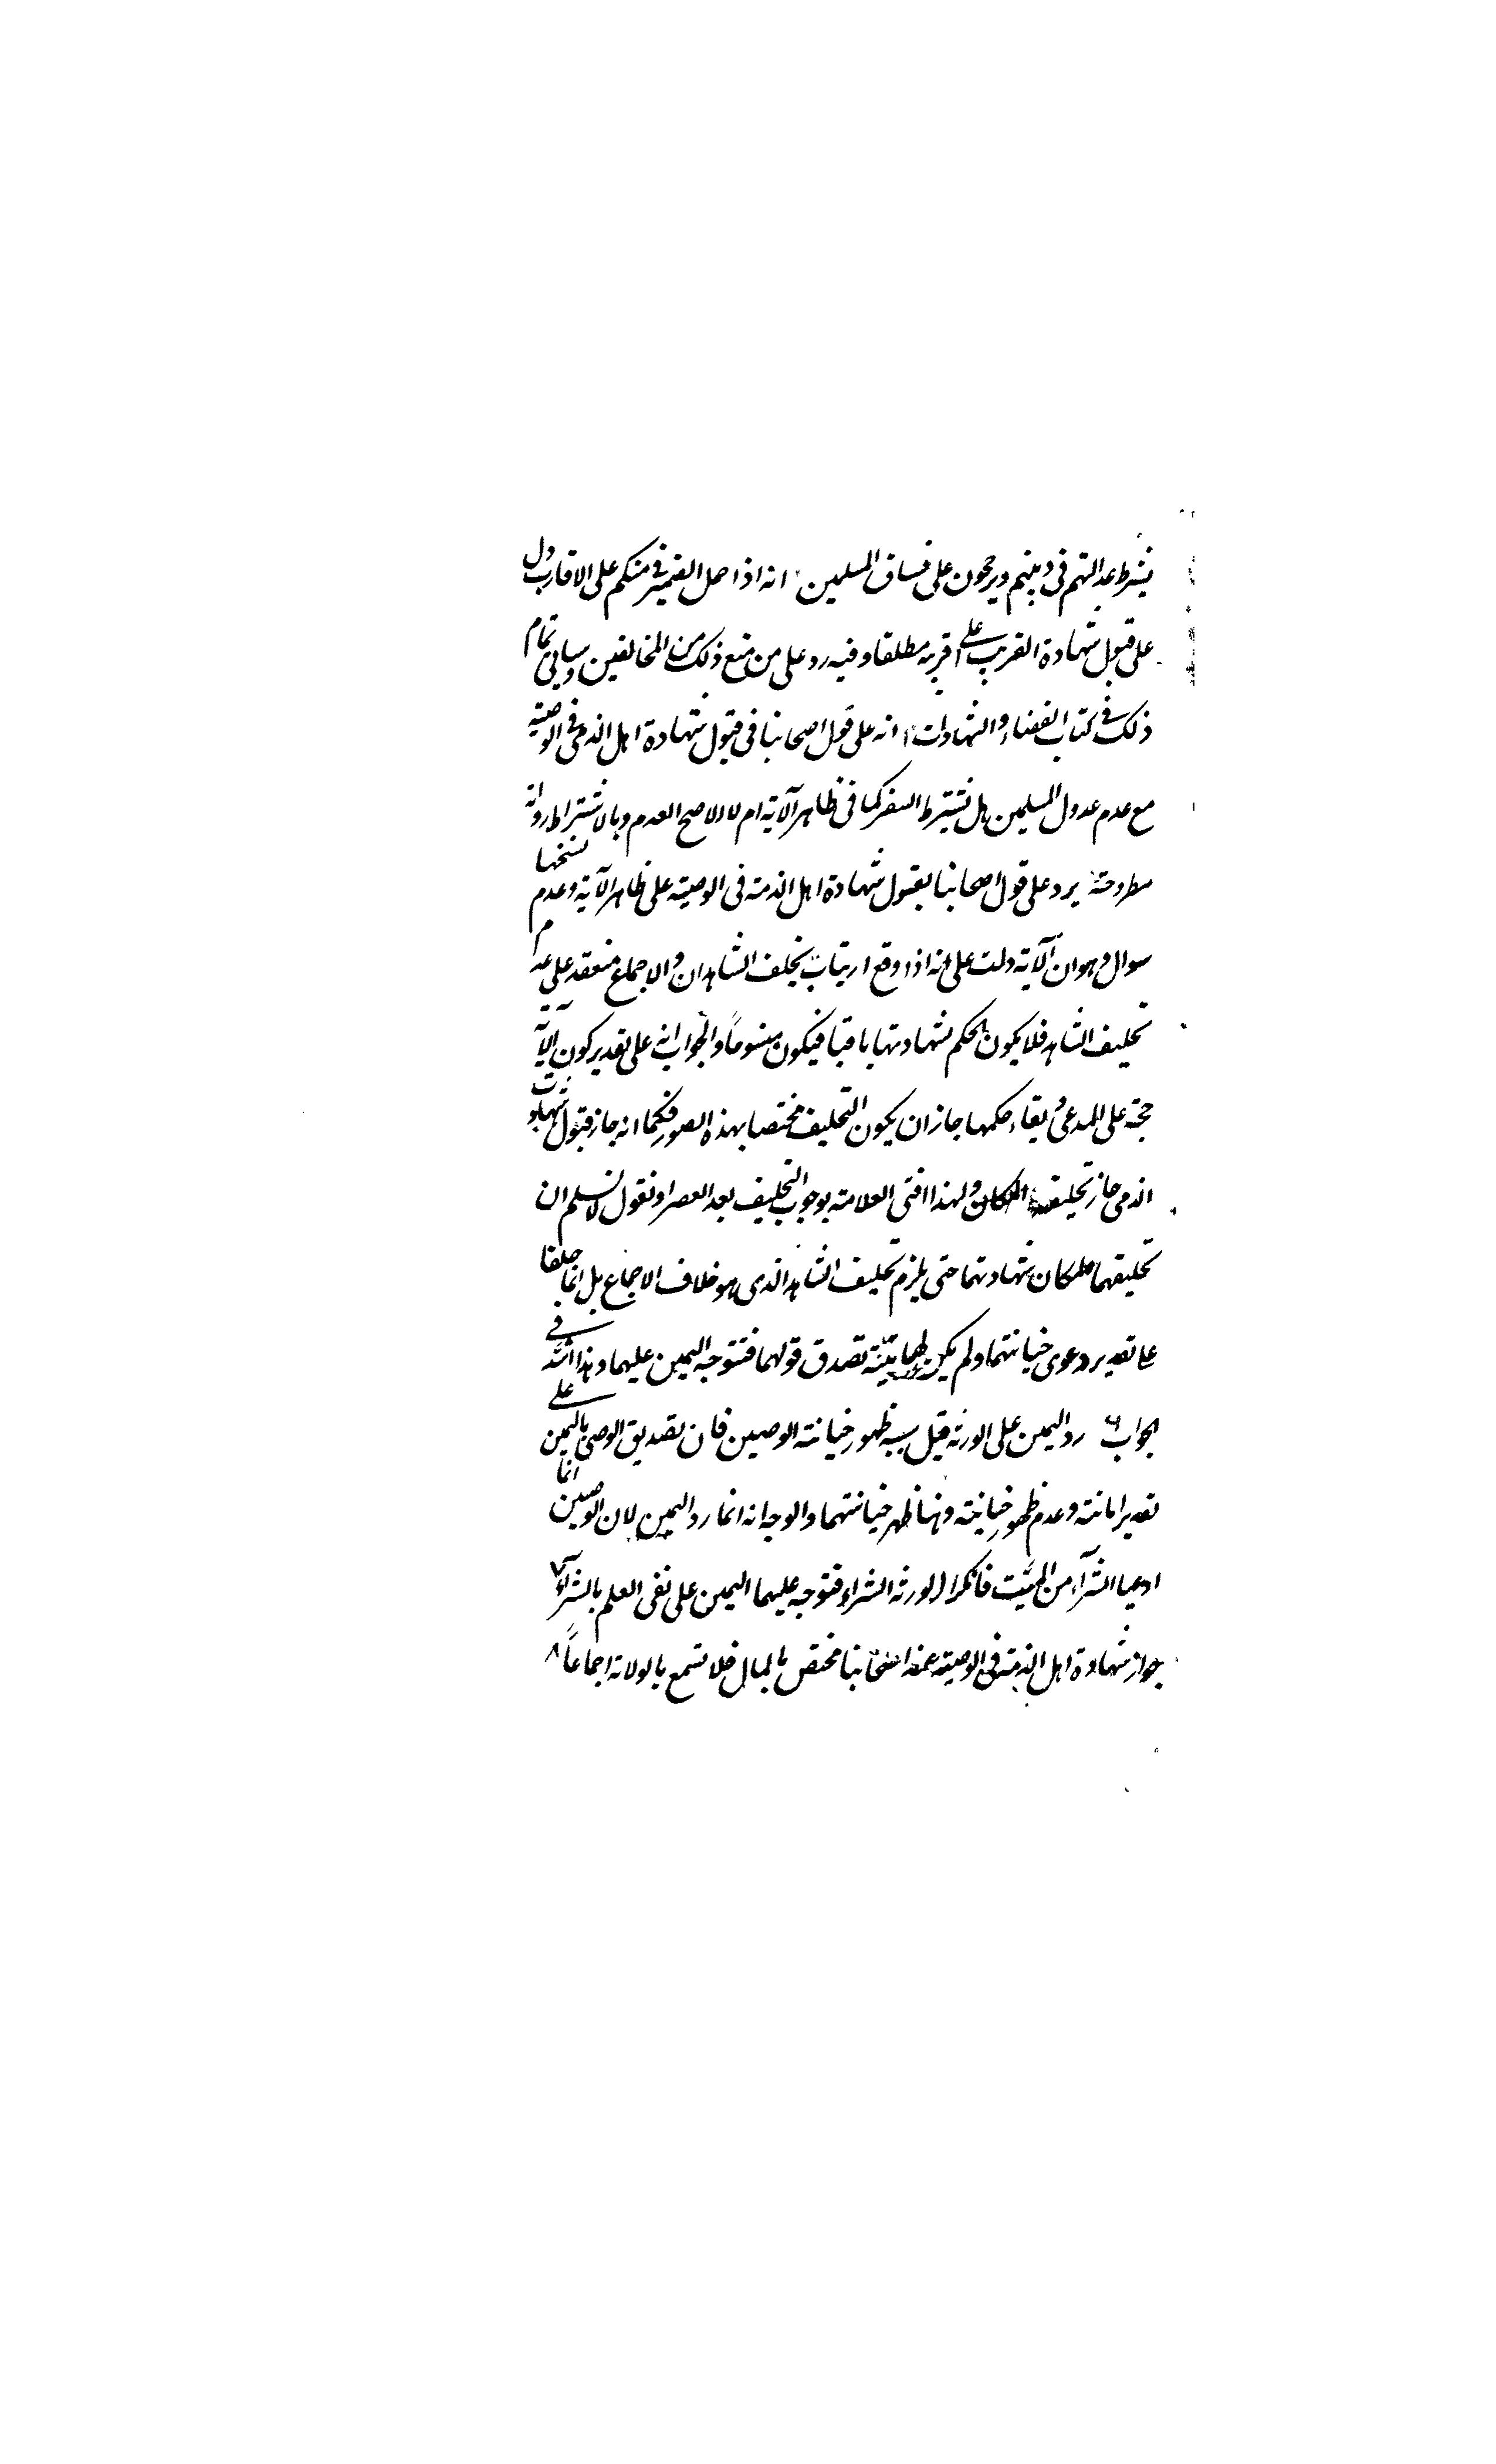 يشترط عدالتهم في دينهم ويرجحون على فساق المسلمين انه اذا حمل الضمير في منكم على الاقارب دل
على قبول شهادة القريب على قريبه مطلقا وفيه رد على من منع ذلك من المخالفين وسياتي تمام
ذلك في كتاب القضاء والشهادات انه على قول اصحابنا في قبول شهادة اهل الذمة في الوصية
مع عدم عدول المسلمين هل يشترط السفر كما في ظاهر الآية ام لا الاصح العدم وبالاشتراط رواية
مطروحة يرد على قول اصحابنا بقبول شهادة اهل الذمة في الوصية على ظاهر الآية وعدم نسخها
سوال وهو ان الآية دلت على انه اذا وقع ارتياب يحلف الشاهدان والاجماع منعقد على عدم
تحليف الشاهد فلا يكون الحكم بشهادتهما باقيا فيكون منسوخا والجواب انه على تقدير كون الآية
حجة على المدعى وبقاء حكمها جاز ان يكون التحليف مختصا بهذه الصورة فكما انه جاز قبول شهادة
الذمي جاز تحليفه ولهذا افتى العلامة بوجوب التحليف بعد العصر او نقول لا نسلم ان
تحليفهما لمكان شهادتهما حتى يلزم تحليف الشاهد الذي هو خلاف الاجماع بل انما حلفا
على تقدير دعوى خيانتهما ولم يكن لهما بينة تصدق قولهما فتتوجه اليمين عليهما وهذا اسد في
الجواب ٦ رد اليمين على الورثة قيل سببه ظهور خيانة الوصيين فان تصديق الوصي باليمين على
تقدير امانته وعدم ظهور خيانته وهنا ظهر خيانتهما والوجه انه انما رد اليمين لان الوصيين انما
ادعيا الشراء من الميت فانكر الورثة الشراء فتوجه عليهما اليمين على نفي العلم بالشراء ٧
جواز شهادة اهل الذمة في الوصية عند اصحابنا مختص بالمال فلا تسمع بالولاية اجماعاً ٨